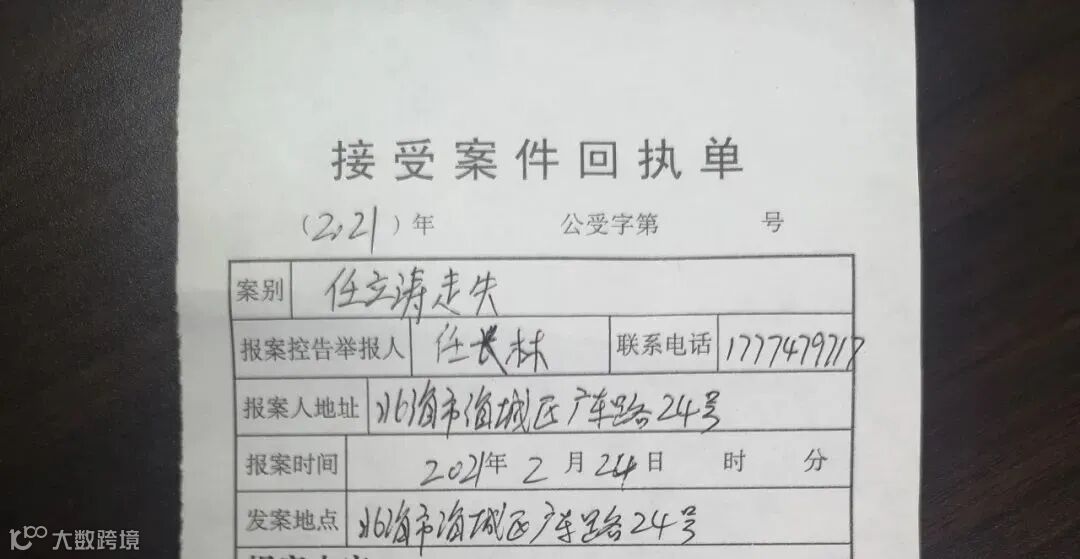 接受案件回执单
(2021)年 公受字第 号
案别 任立涛走失
报案控告举报人 任长林 联系电话 1777479717
报案人地址 北海市海城区广东路24号
报案时间 2021年2月24日 时 分
发案地点 北海市海城区广东路24号
大数跨境